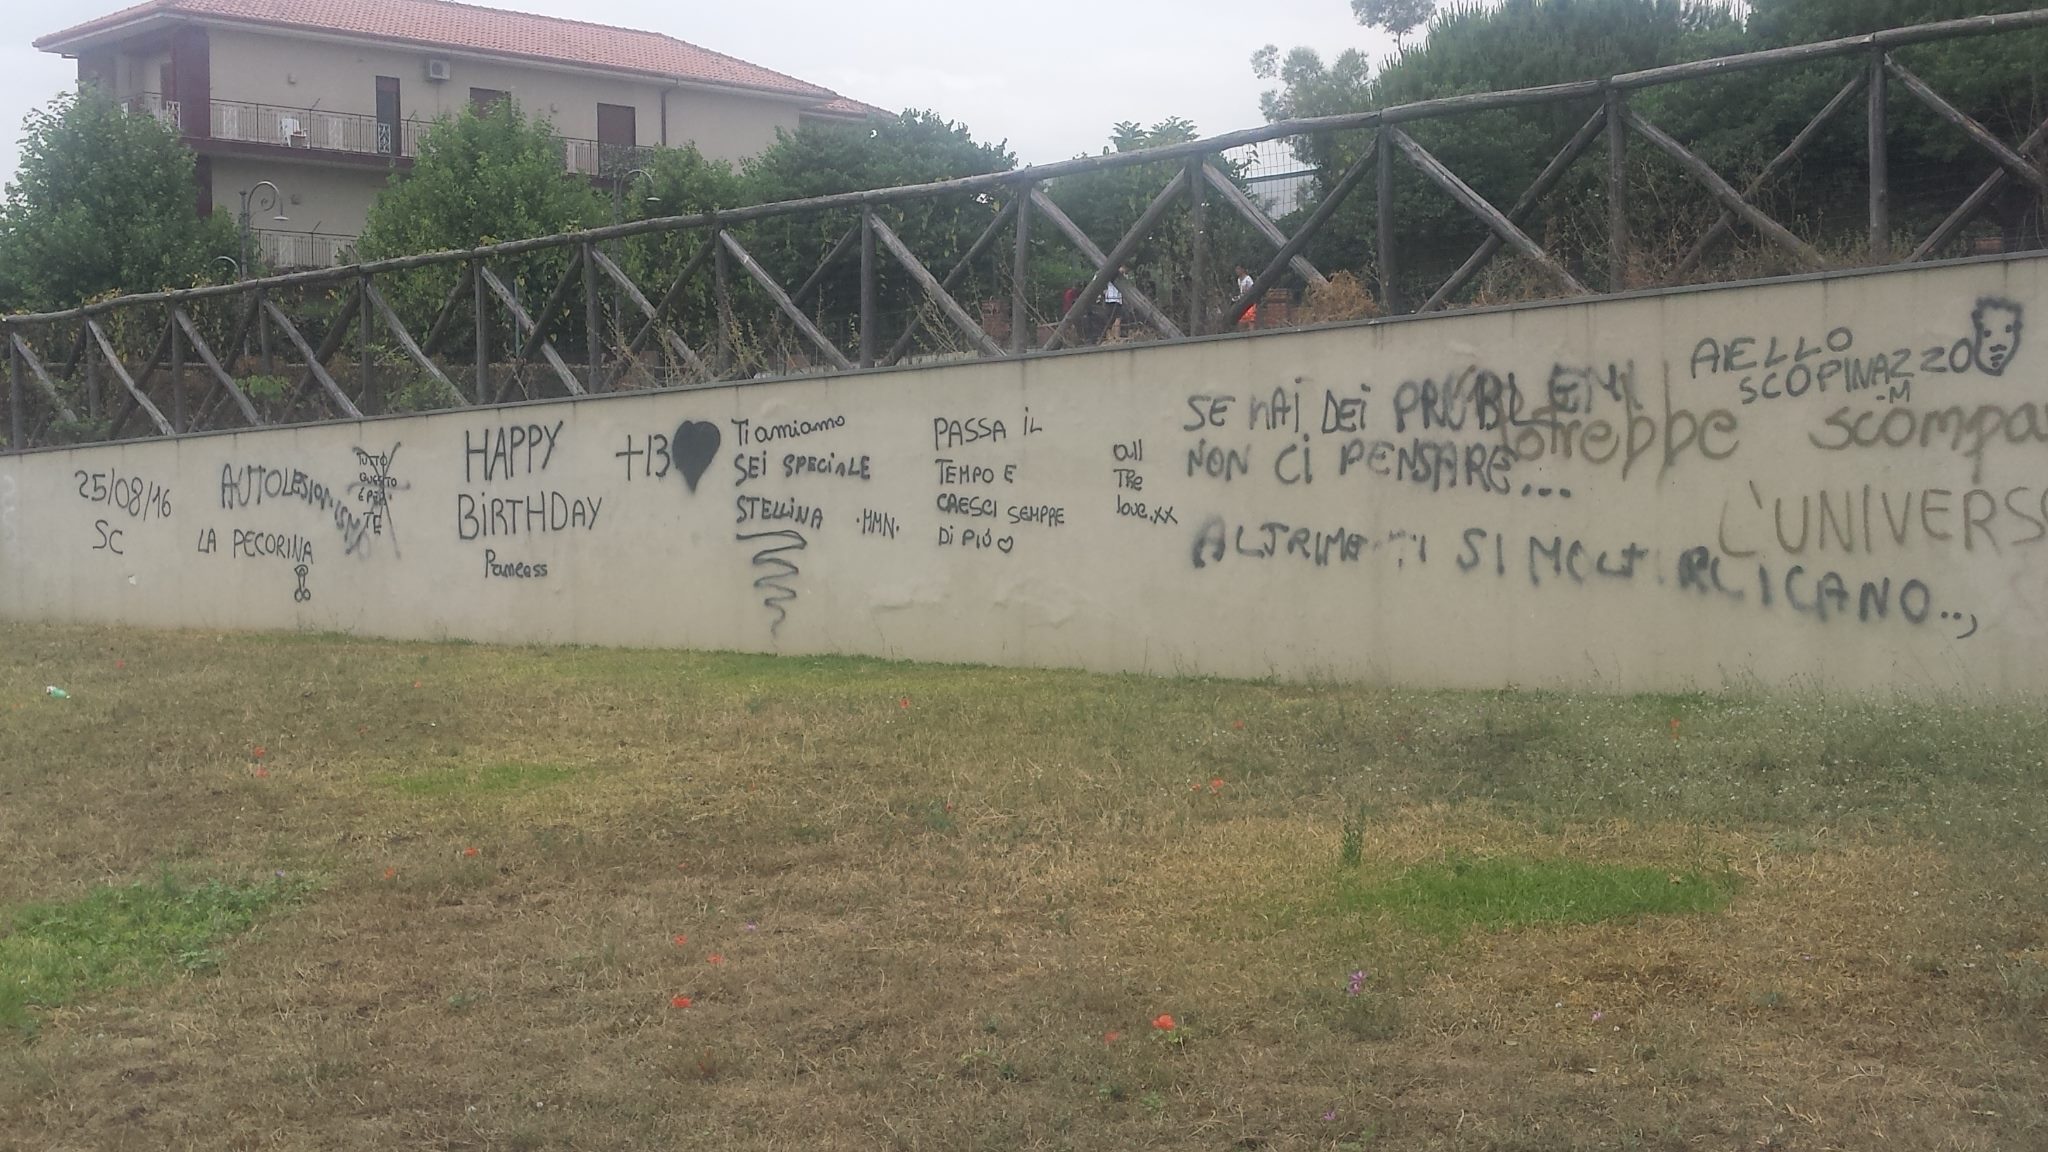 25/08/16
SC
AUTOLESIONISMO
LA PECORINA
TUTTO
QUESTO
È PER
TE
HAPPY
BiRTHDAY
+13
Ti amiamo
SEI SPECIALE
STELLINA
·MMN·
PASSA iL
TEMPO E
CRESCI SEMPRE
Di PIÚ
all
The
love.xx
SE HAi DEi PROBLEMI
NON CI PENSARE...
ALTRIMENTI SI MOLTIPLICANO..,
potrebbe scompa
L'UNIVERSO
AIELLO
SCOPINAZZO
-M